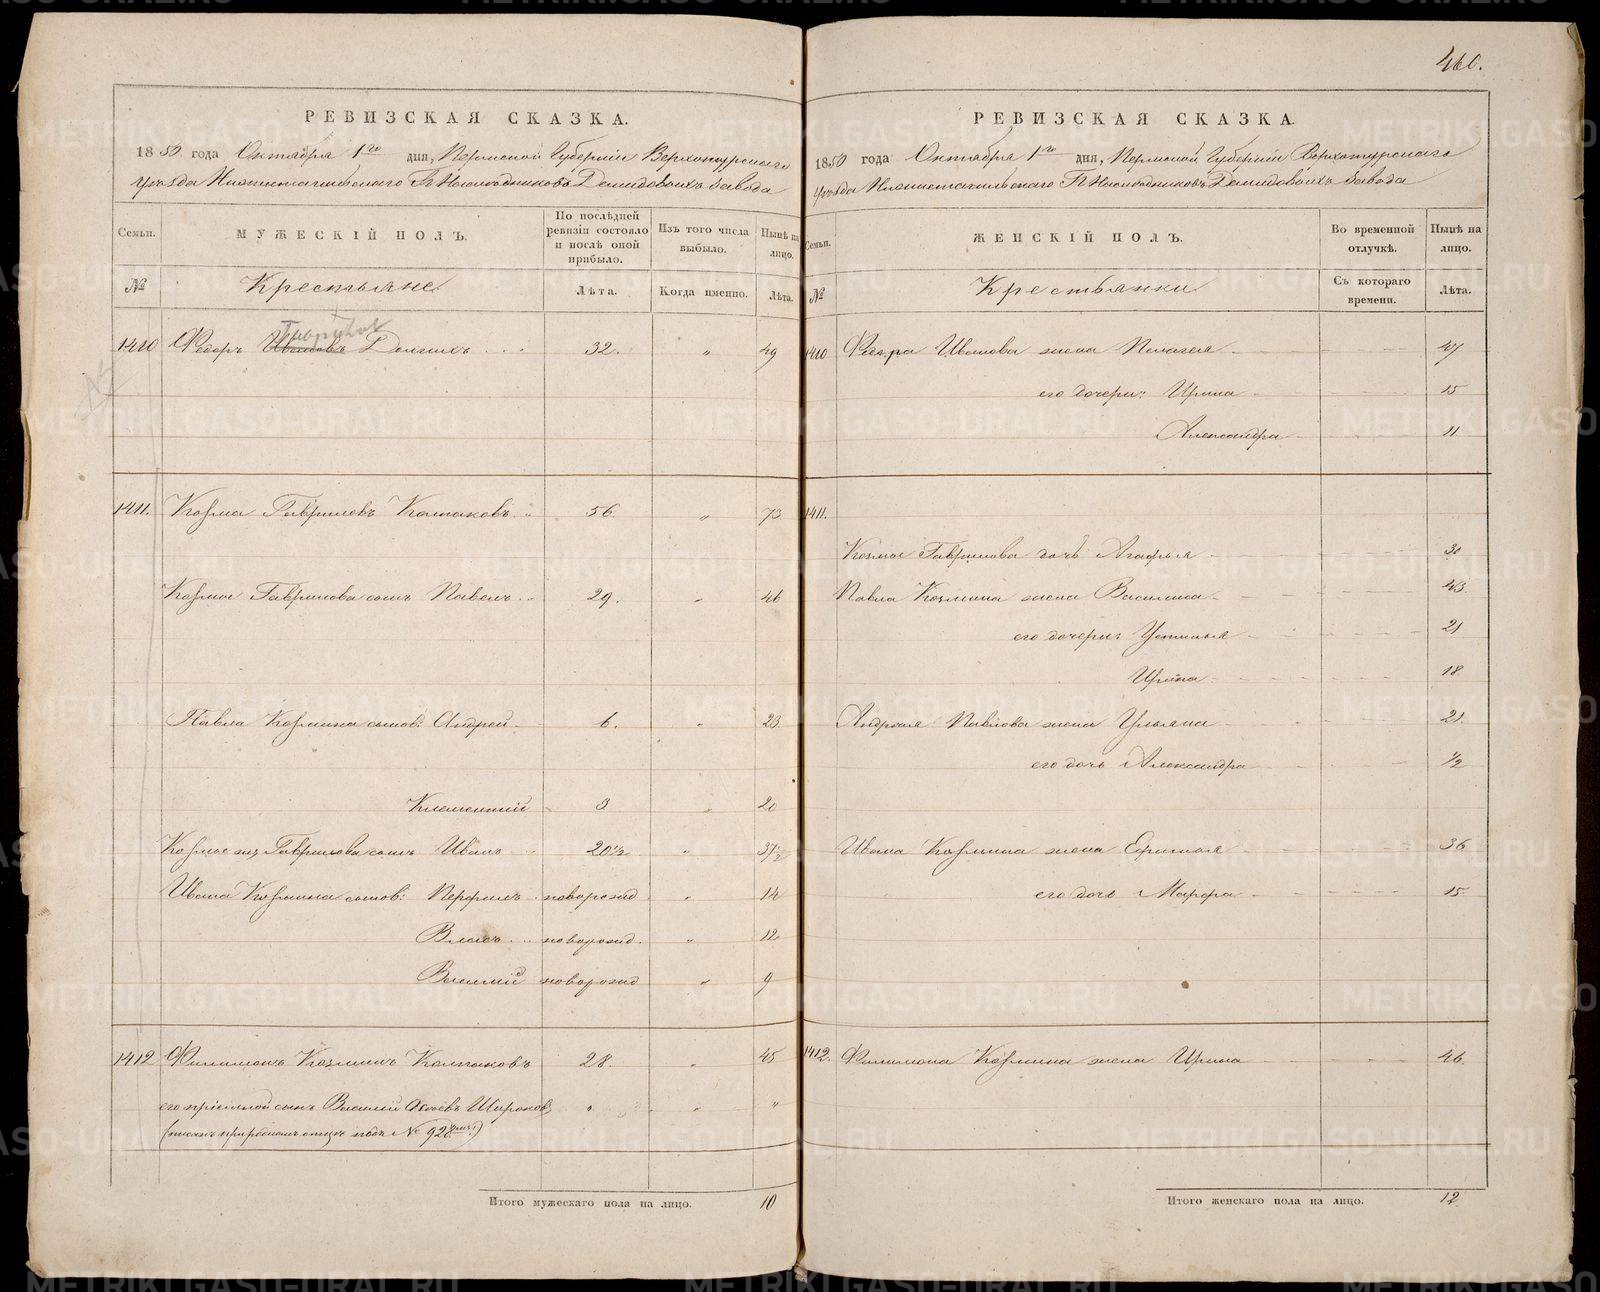 460.
РЕВИЗСКАЯ СКАЗКА.
1850 года Октября 1го дня, Пермской Губерніи Верхотурскаго
уѣзда Нижнетагильскаго Гг. Наслѣдниковъ Демидовыхъ завода
Семьи. МУЖЕСКІЙ ПОЛЪ. По послѣдней ревизіи состояло и послѣ оной прибыло. Изъ того числа выбыло. Нынѣ на лицо.
№ Крестьяне Лѣта. Когда именно. Лѣта.
Гаврилов
1410 Федоръ Ивановъ Долгихъ 32. " 49
1411. Козма Гавриловъ Колпаковъ 56. " 73
Козмы Гаврилова сынъ Павелъ 29. " 46
Павла Козмина сынов: Андрей 6. " 23
Климентий 3 " 20
Козмы же Гаврилова сынъ Иванъ 20½ " 37½
Ивана Козмина сынов: Перфилъ новорожд. " 14
Власъ новорожд. " 12
Василий новорожд " 9
1412 Филимонъ Козминъ Колпаковъ 28. " 45
его приемной сынъ Василий Широков " " "
(писанъ при родномъ отцѣ подъ № 928)
Итого мужескаго пола на лицо. 10
РЕВИЗСКАЯ СКАЗКА.
1850 года Октября 1го дня, Пермской Губерніи Верхотурскаго
уѣзда Нижнетагильскаго Гг. Наслѣдниковъ Демидовыхъ завода
Семьи. ЖЕНСКІЙ ПОЛЪ. Во временной отлучкѣ. Нынѣ на лицо.
№ Крестьянки Съ котораго времени. Лѣта.
1410 Федора Иванова жена Пелагея 47
его дочери: Ирина 15
Александра 11
1411.
Козмы Гаврилова дочь Агафья 30
Павла Козмина жена Василиса 43
его дочери: Устинья 21
Ирина 18
Андрея Павлова жена Ульяна 21
его дочь Александра ½
Ивана Козмина жена 36
его дочь Марфа 15
1412. Филимона Козмина жена Ирина 46.
Итого женскаго пола на лицо. 12
METRIKI.GASO-URAL.RU